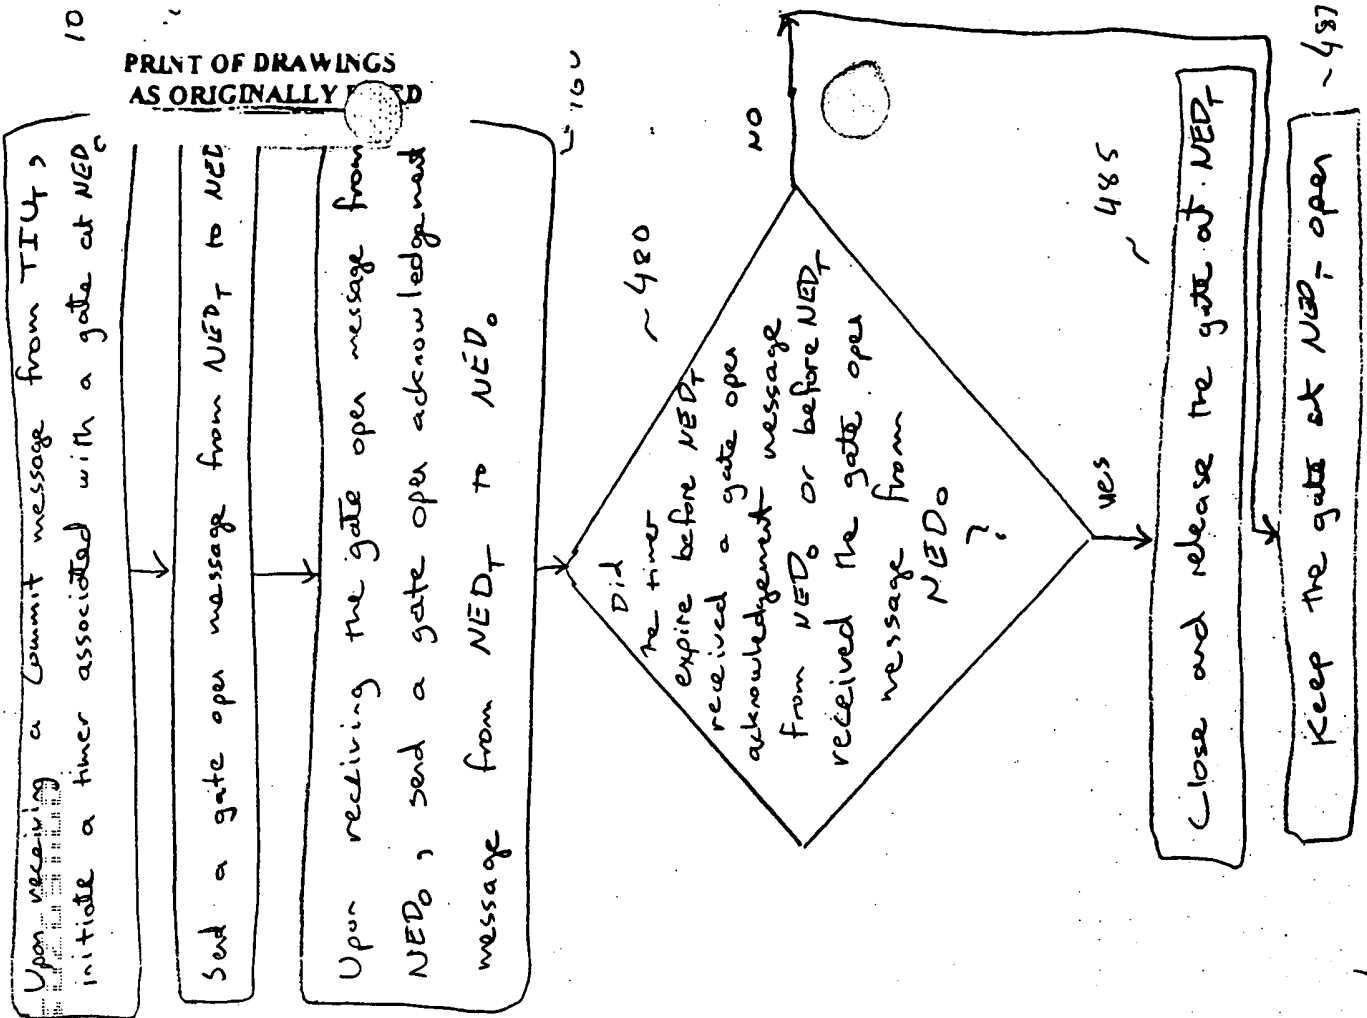 PRINT OF DRAWINGS
AS ORIGINALLY
10
Upon receiving a Commit message from TIU_T,
initiate a timer associated with a gate at NED
Send a gate open message from NED_T to NED
Upon receiving the gate open message from
NED_O, send a gate open acknowledgement
message from NED_T to NED_O
~480
Did
the timer
expire before NED_T
received a gate open
acknowledgement message
from NED_O or before NED_T
received the gate open
message from
NED_O
?
NO
yes
~485
Close and release the gate at NED_T
Keep the gate at NED_T open
~487